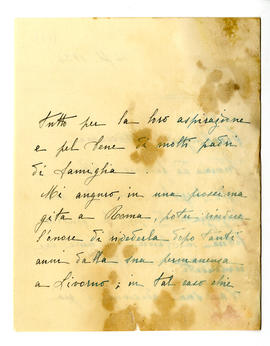 tutto per la loro aspirazione
e pel bene di molti padri
di famiglia.
Mi auguro, in una prossima
gita a Roma, poter
l'onore di rivederla dopo tanti
anni dalla sua permanenza
a Livorno; in tal caso